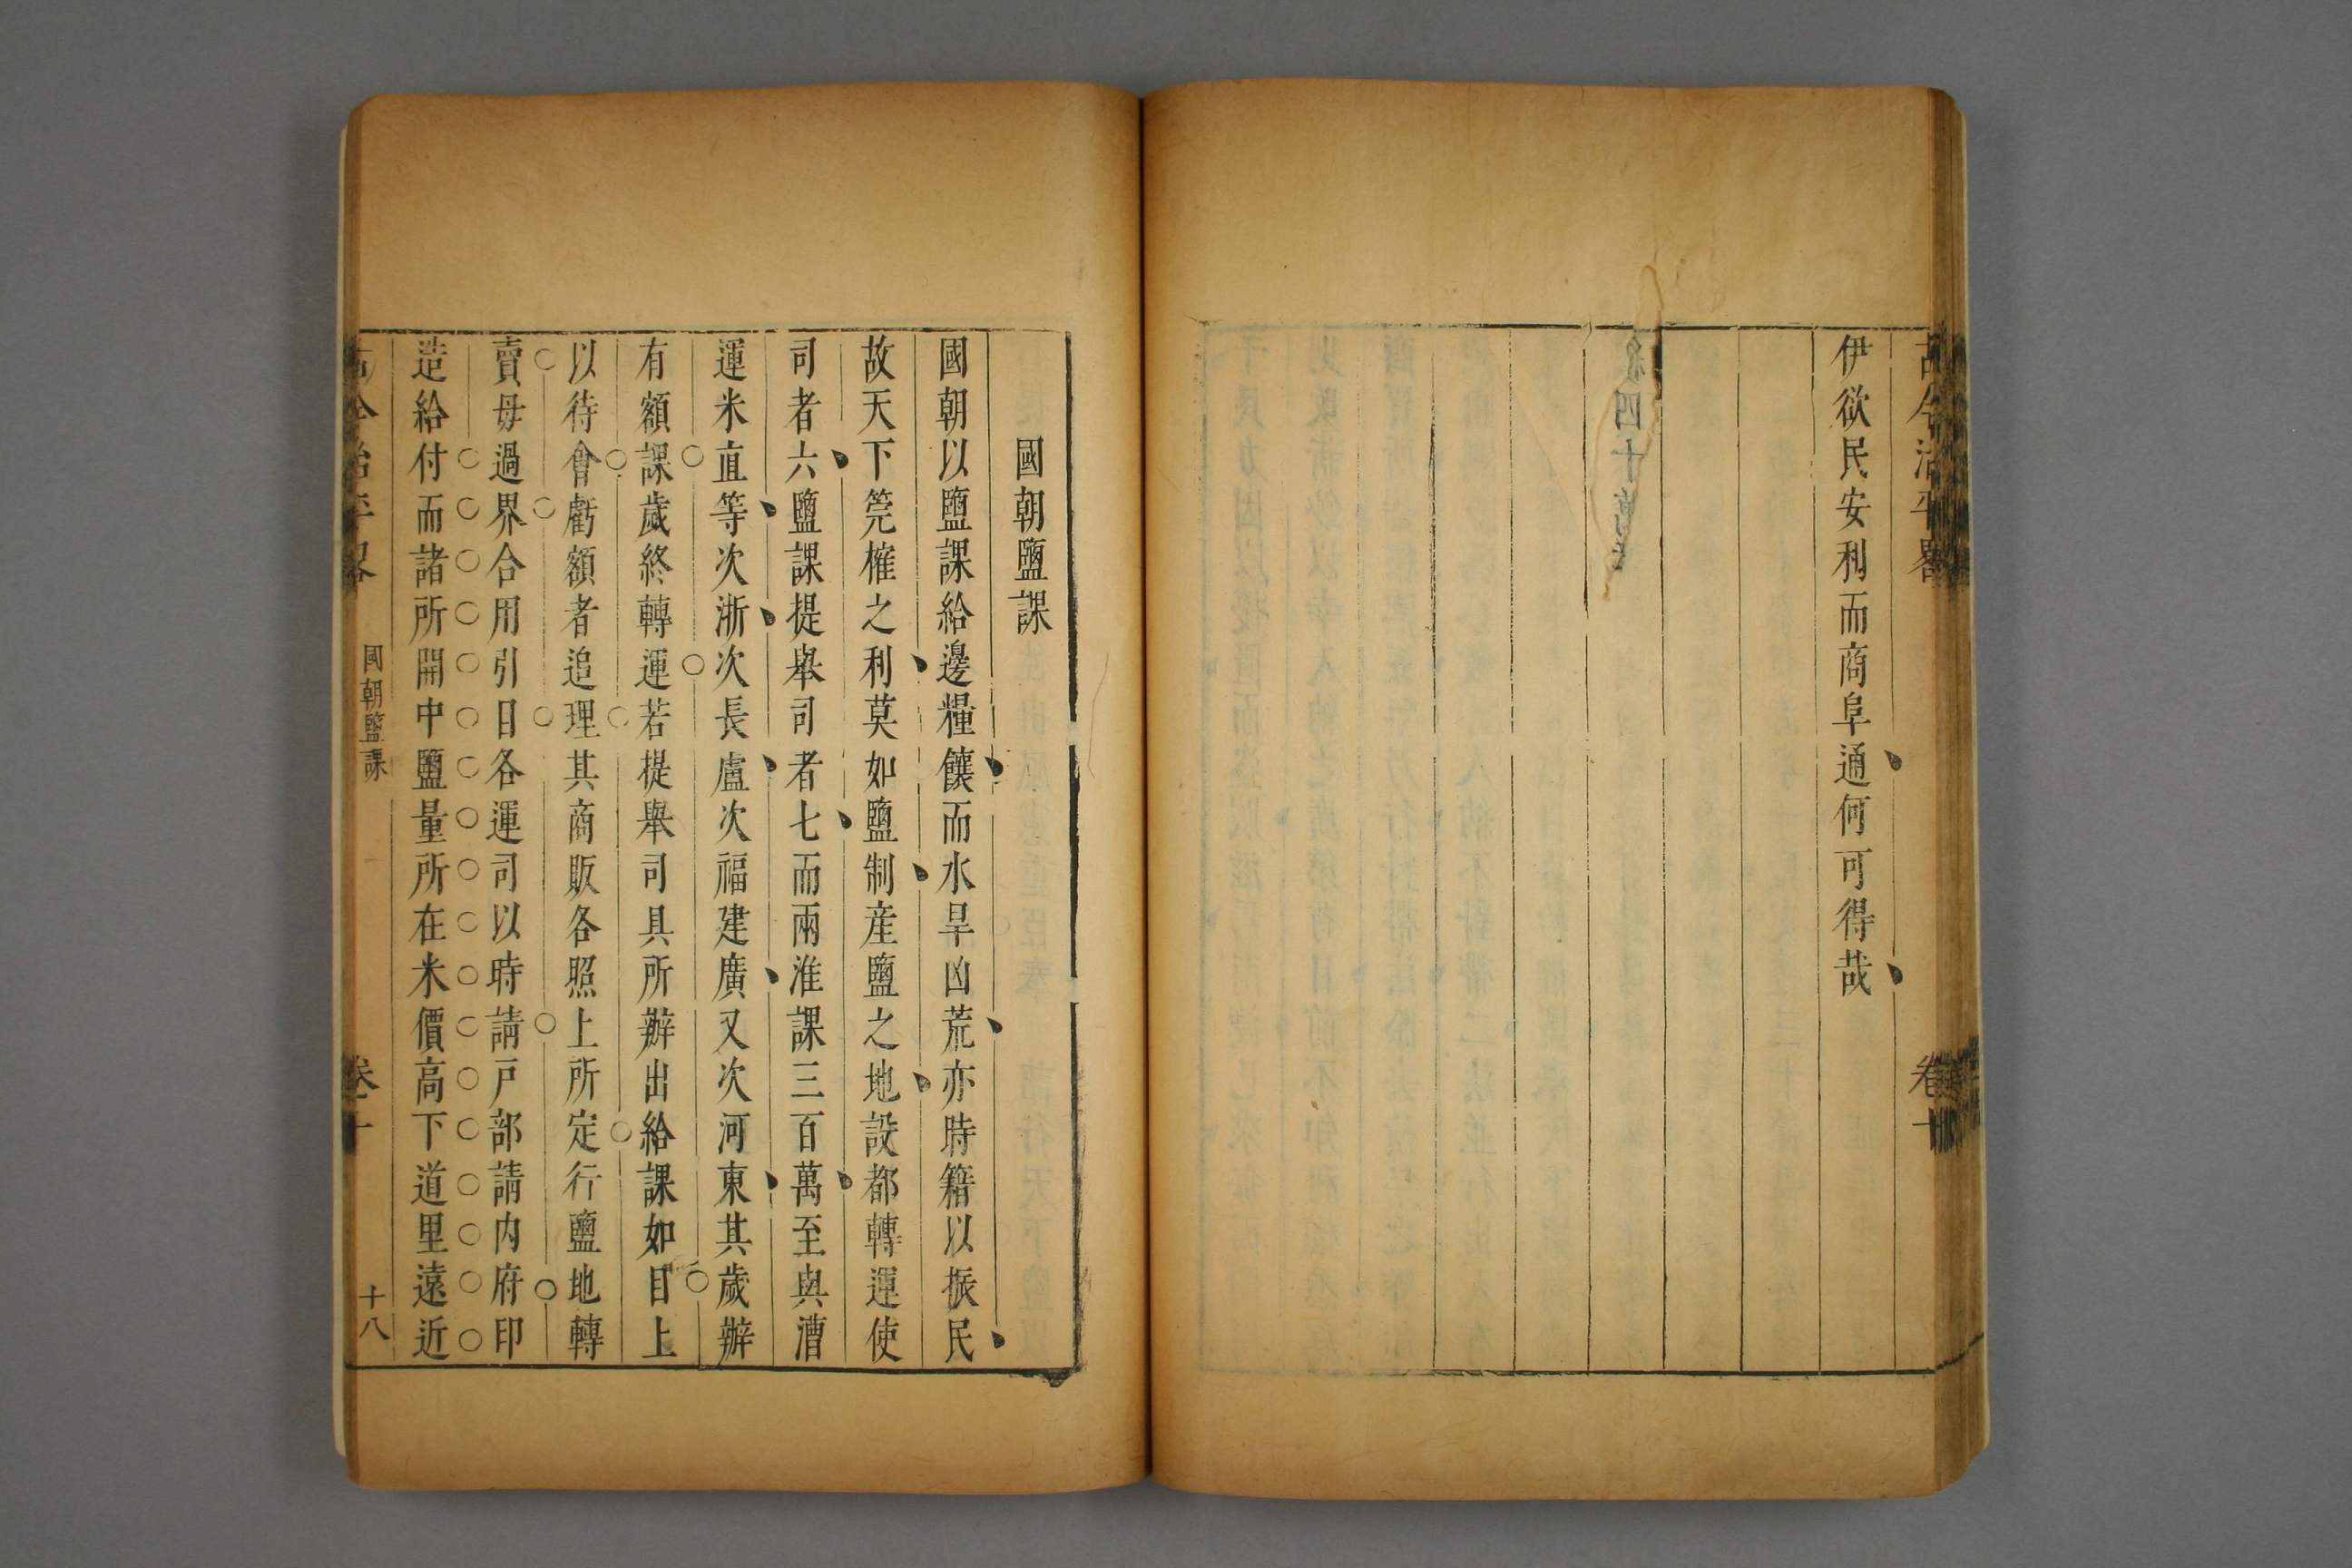 古今治平畧
卷十
伊欲民安利而商阜通何可得哉
國朝鹽課
國朝以鹽課給邊糧饟而水旱凶荒亦時籍以振民
故天下筦榷之利莫如鹽制産鹽之地設都轉運使
司者六鹽課提舉司者七而兩淮課三百萬至與漕
運米直等次浙次長盧次福建廣又次河東其歲辦
有額課歲終轉運若提舉司具所辦出給課如目上
以待會虧額者追理其商販各照上所定行鹽地轉
賣毋過界合用引日各運司以時請戸部請内府印
造給付而諸所開中鹽量所在米價高下道里遠近
古今治平畧
國朝鹽課
卷十
十八